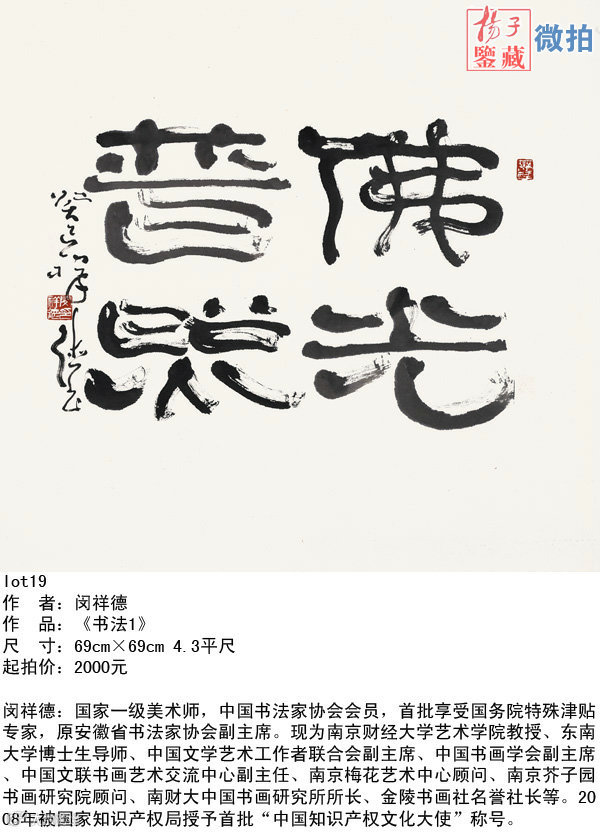 揚子
鑒藏
微拍
佛光
普照
癸巳
lot19
作　者：闵祥德
作　品：《书法1》
尺　寸：69cm×69cm 4.3平尺
起拍价：2000元
闵祥德：国家一级美术师，中国书法家协会会员，首批享受国务院特殊津贴
专家，原安徽省书法家协会副主席。现为南京财经大学艺术学院教授、东南
大学博士生导师、中国文学艺术工作者联合会副主席、中国书画学会副主席
、中国文联书画艺术交流中心副主任、南京梅花艺术中心顾问、南京芥子园
书画研究院顾问、南财大中国书画研究所所长、金陵书画社名誉社长等。20
08年被国家知识产权局授予首批“中国知识产权文化大使”称号。